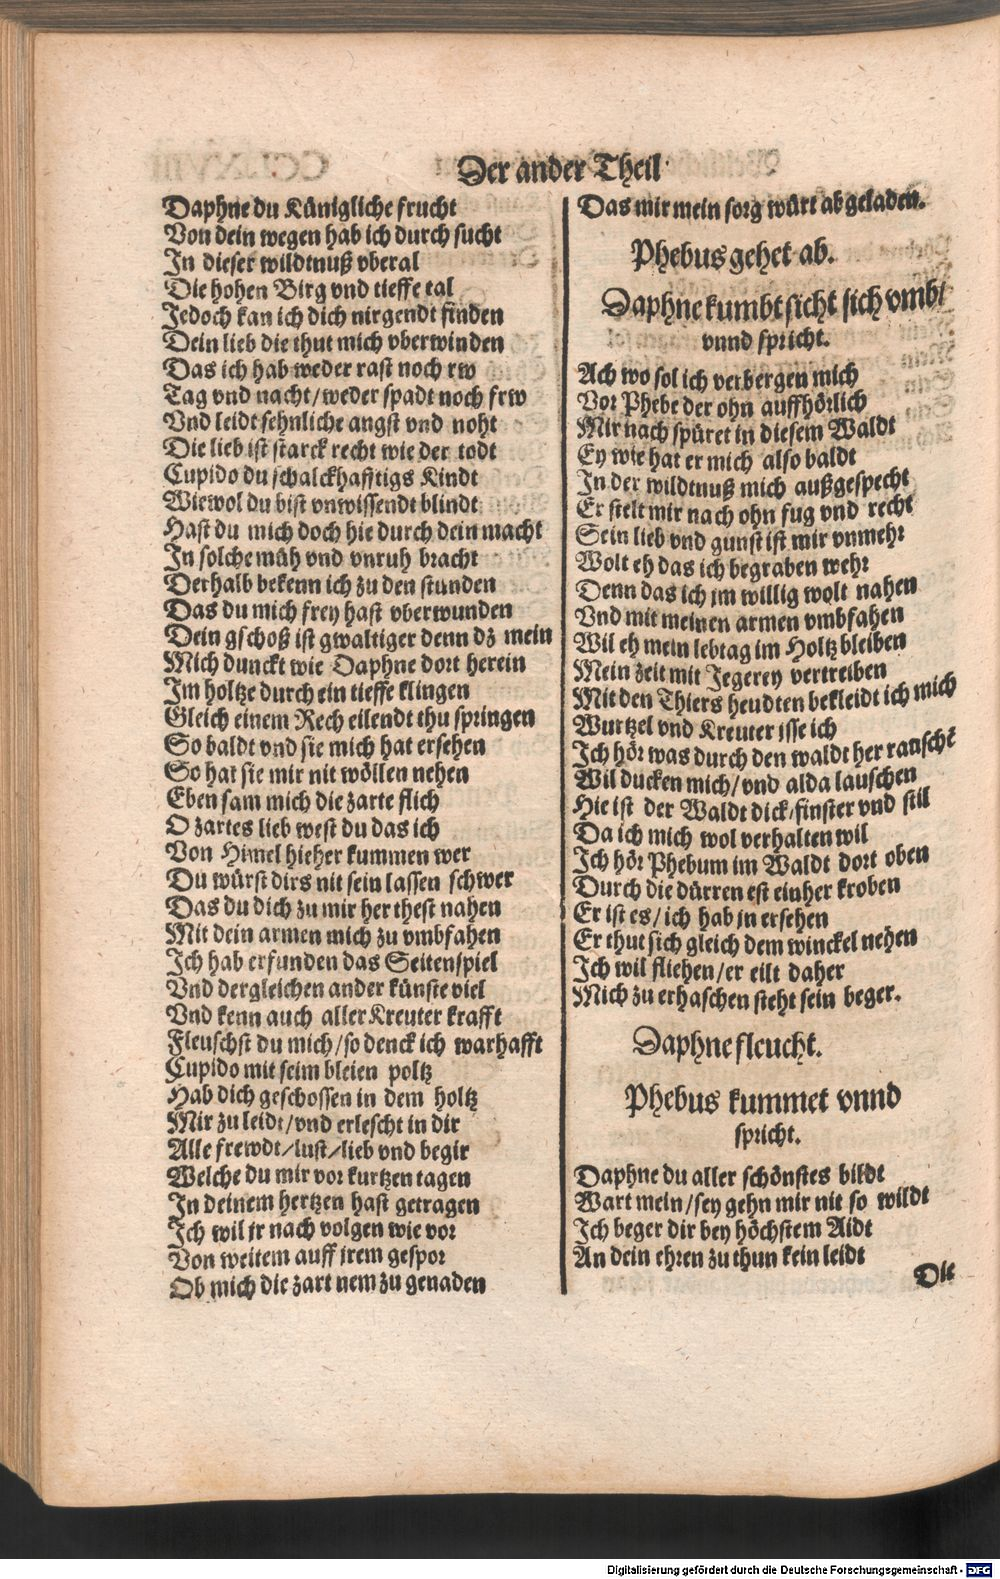 Der ander Theil
Daphne du Künigliche frucht
Von dein wegen hab ich durch sucht
In dieser wildtnuß vberal
Die hohen Birg vnd tieffe tal
Jedoch kan ich dich nirgendt finden
Dein lieb die thut mich vberwinden
Das ich hab weder rast noch rw
Tag vnd nacht/weder spadt noch frw
Vnd leidt sehnliche angst vnd noht
Die lieb ist starck recht wie der todt
Cupido du schalckhafftigs Kindt
Wiewol du bist vnwissendt blindt
Hast du mich doch hie durch dein macht
In solche müh vnd vnruh bracht
Derhalb bekenn ich zu den stunden
Das du mich frey hast vberwunden
Dein gschoß ist gwaltiger denn dz mein
Mich dunckt wie Daphne dort herein
Im holtze durch ein tieffe klingen
Gleich einem Rech eilendt thu springen
So baldt vnd sie mich hat ersehen
So hat sie mir nit wöllen nehen
Eben sam mich die zarte flich
O zartes lieb west du das ich
Von Himel hieher kummen wer
Du würst dirs nit sein lassen schwer
Das du dich zu mir her thest nahen
Mit dein armen mich zu vmbfahen
Ich hab erfunden das Seitenspiel
Vnd dergleichen ander künste viel
Vnd kenn auch aller Kreuter krafft
Fleuschst du mich/so denck ich warhafft
Cupido mit seim bleien poltz
Hab dich geschossen in dem holtz
Mir zu leidt/vnd erlescht in dir
Alle frewdt/lust/lieb vnd begir
Welche du mir vor kurtzen tagen
In deinem hertzen hast getragen
Ich wil jr nach volgen wie vor
Von weitem auff jrem gespor
Ob mich die zart nem zu genaden
Das mir mein sorg würt abgeladen.
Phebus gehet ab.
Daphne kumbt sicht sich vmb/
vnnd spricht.
Ach wo sol ich verbergen mich
Vor Phebe der ohn auffhörlich
Mir nach spüret in diesem Waldt
Ey wie hat er mich also baldt
In der wildtnuß mich außgespecht
Er stelt mir nach ohn fug vnd recht
Sein lieb vnd gunst ist mir vnmehr
Wolt eh das ich begraben wehr
Denn das ich jm willig wolt nahen
Vnd mit meinen armen vmbfahen
Wil eh mein lebtag im Holtz bleiben
Mein zeit mit Jegerey vertreiben
Mit den Thiers heudten bekleidt ich mich
Wurtzel vnd Kreuter isse ich
Ich hör was durch den waldt her rauschē
Wil ducken mich/vnd alda lauschen
Hie ist der Waldt dick/finster vnd stil
Da ich mich wol verhalten wil
Ich hör Phebum im Waldt dort oben
Durch die dürren est einher kroben
Er ist es/ich hab jn ersehen
Er thut sich gleich dem winckel nehen
Ich wil fliehen/er eilt daher
Mich zu erhaschen steht sein beger.
Daphne fleucht.
Phebus kummet vnnd
spricht.
Daphne du aller schönstes bildt
Wart mein/sey gehn mir nit so wildt
Ich beger dir bey höchstem Aidt
An dein ehren zu thun kein leidt
Die
Digitalisierung gefördert durch die Deutsche Forschungsgemeinschaft - DFG